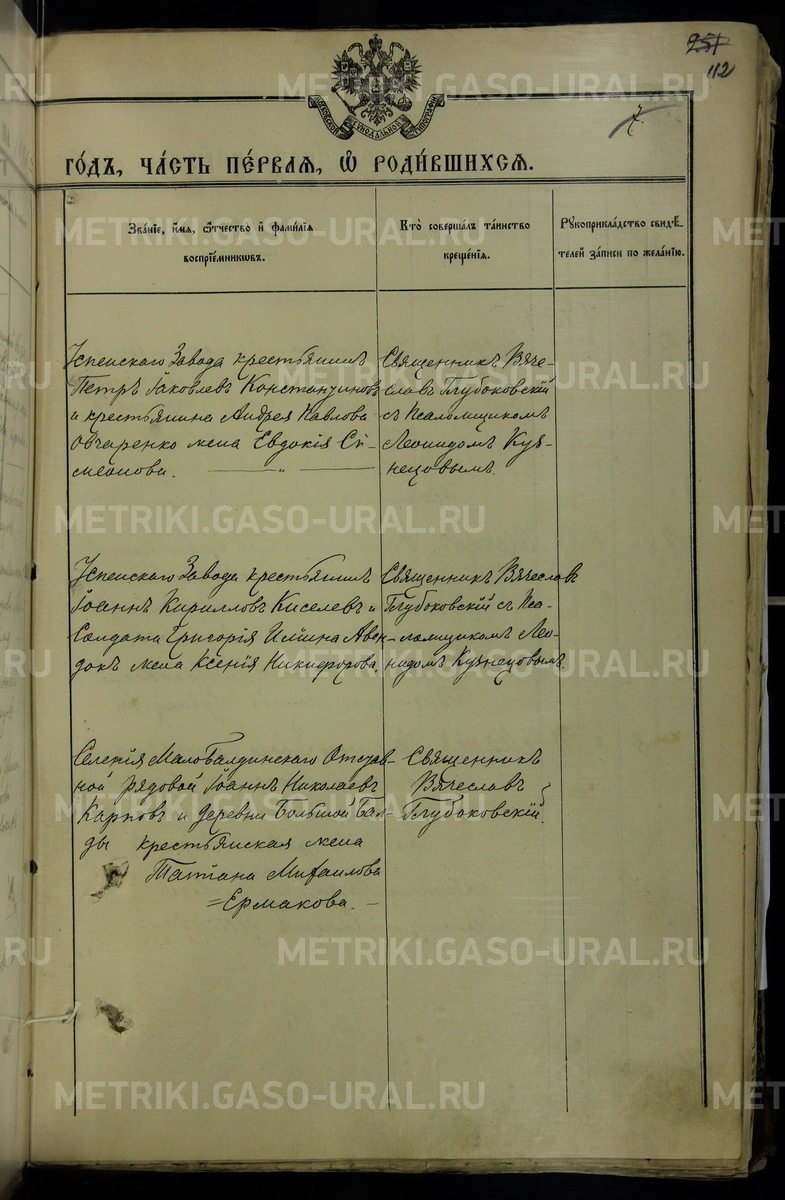 251
112
7.
МОСКОВСКОЙ СУНОДАЛЬНОЙ ТИПОГРАФІИ
ГО́ДЪ, ЧА́СТЬ ПЕ́РВАѦ, Ѡ҆ РОДИ́ВШИХСѦ.
Зва́нїе, и҆́мѧ, ѻ҆́тчество и҆ фами́лїѧ
воспрїе́мникѡвъ.
Кто̀ соверша́лъ та́инство
креще́нїѧ.
Рꙋкоприкла́дство свидѣ́-
телей за́писи по жела́нїю.
Успенскаго Завода крестьянинъ
Петръ Іаковлевъ Константиновъ
и крестьянина Андрея Павлова
Овчаренко жена Евдокія Си-
меонова.
Священникъ Вяче-
славъ Глубоковскій
съ Псаломщикомъ
Леонидомъ Куз-
нецовымъ.
Успенскаго Завода крестьянинъ
Іоаннъ Кирилловъ Киселевъ и
Солдата Григорія Иліина
жена Ксенія Никифорова.
Священникъ Вячеславъ
Глубоковскій съ Пса-
ломщикомъ Лео-
нидомъ Кузнецовымъ.
Селенія МалоБалдинскаго Отстав-
ной рядовой Іоаннъ Николаевъ
Карповъ и деревни Большой Бал-
ды крестьянская жена
Татіана Михаилова
=Ермакова. –
Священникъ
Вячеславъ
Глубоковскій.
METRIKI.GASO-URAL.RU